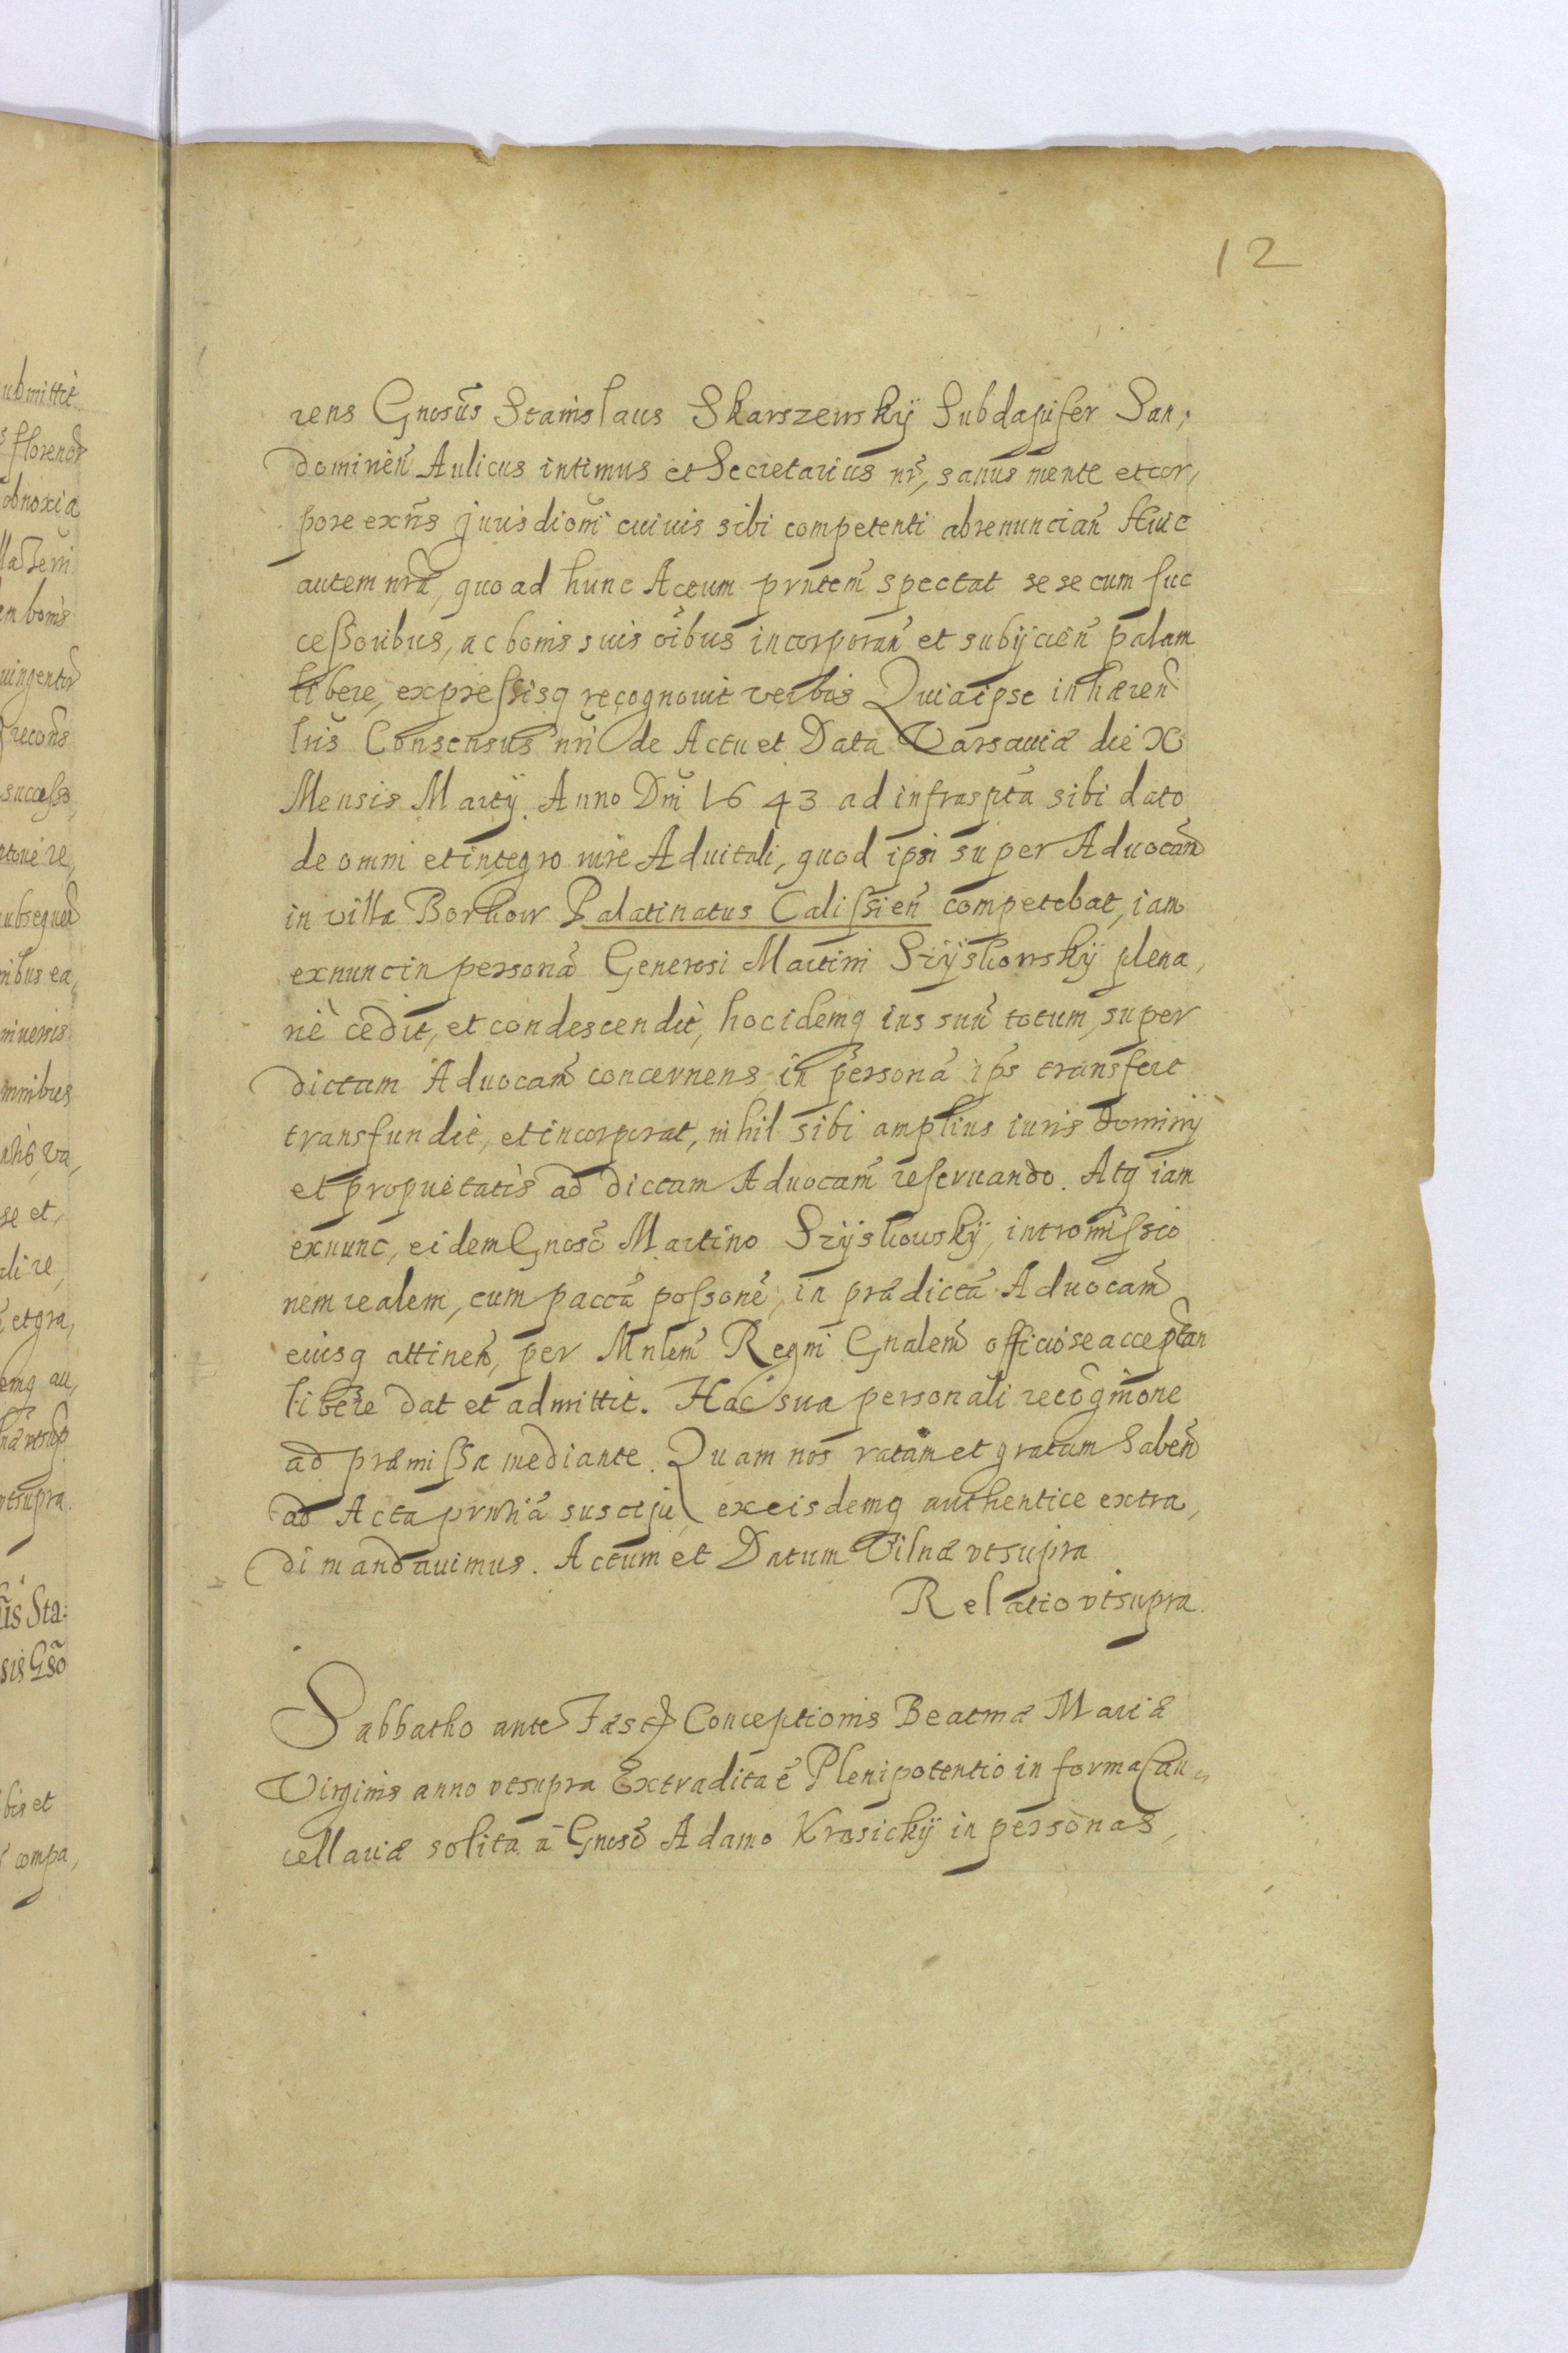 12
rens Gnosũs Stanislaus Skarszewskÿ Subdapifer San,
dominen̄ Aulicus intimus et Secretarius nr̄, sanus mente et cor,
pore exn̄s jurisdiom̄i cuiuis sibi competenti abrenuncian̄ Huic
autem nrã, quo ad hunc Actum prntem̄ spectat se se cum suc
ceßoribus, ac bonis suis oĩbus incorporan̄ et subÿcien̄ palam
libere, expreßisq recognouit verbis Quia ipse inhæren̄
lris̄ Consensus nrĩ de Actu et Data Varsauiæ die X
Mensis Martÿ Anno Dn̄i 1643 ad infrasptã sibi dato
de omni et integro iure Aduitali, quod ipsi super Aduocan̄
in villa Borkow Palatinatus Calißien̄ competebat, iam
exnunc in personã Generosi Martini Szÿskowskÿ plena,
riè cedit, et condescendit, hoc idemq ius suũ totum, super
dictam Aduocam̄ concernens, in personã ips̄ transfert
transfundit, et incorporat, nihil sibi amplius iuris Dominÿ
et proprietatis ad dictam Aduocam̄ reservando. Atq iam
exnunc, eidem Gnosõ Martino Szÿskowskÿ, intromißio
nem realem, cum paccã poßonẽ, in prædictã Aduocam̄
eiusq attinen̄, per Mnlem̄ Regni Gnalem̄ officiose acceptan
libere dat et admittit. Hac sua personali recognĩone
ad præmißa mediante. Quam nos ratam et gratam haben̄
ad Acta prntiã suscipi, ex eisdemq authentice extra,
di mandauimus. Actum et Datum Vilnæ vt supra
Relatio vt supra.
Sabbatho ante Fest Conceptionis Beatmæ Mariæ
Virginis anno vt supra Extradita ẽ Plenipotentio in forma Can
cellariæ solita à Gnosõ Adamo Krasickÿ in personas,
ubmittit
florenor
obnoxia
en bonis
recons
successo,
ubsequen
nibus ea,
niuersis
omnibus
se et,
et gra,
emq au,
vt supra.
Sta:
sis Gsõ
bis et
compa,